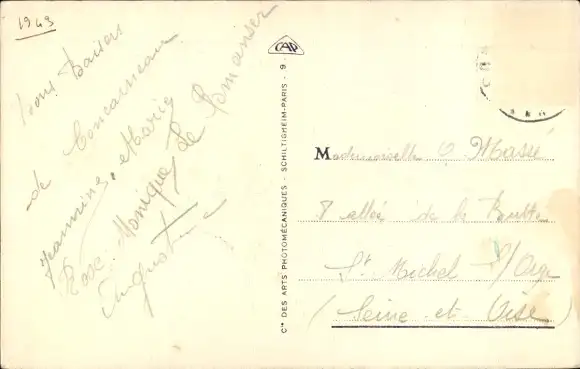 1949
Bons Baisers
de Concarneau
Jeannine, Marie
Rose, Monique Le Romancer
Augustine
CAP
Cie DES ARTS PHOTOMÉCANIQUES - SCHILTIGHEIM-PARIS - 9
Mademoiselle O Massé
8 allée de la Butte
St Michel S/Orge
(Seine-et-Oise)